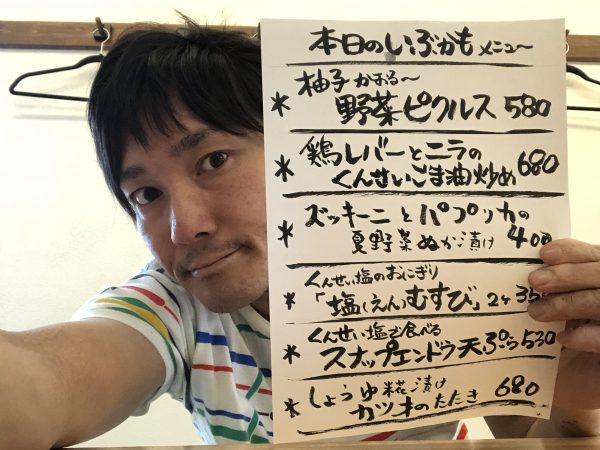 本日のいぶかもメニュー
＊柚子かおる〜
野菜ピクルス 580
＊鶏レバーとニラの
くんせいごま油炒め 680
＊ズッキーニとパプリカの
夏野菜ぬか漬け 400
＊くんせい塩のおにぎり
「塩(えん)むすび」2ケ 350
＊くんせい塩で食べる
スナップエンドウ天ぷら 530
＊しょうゆ糀漬け
カツオのたたき 680